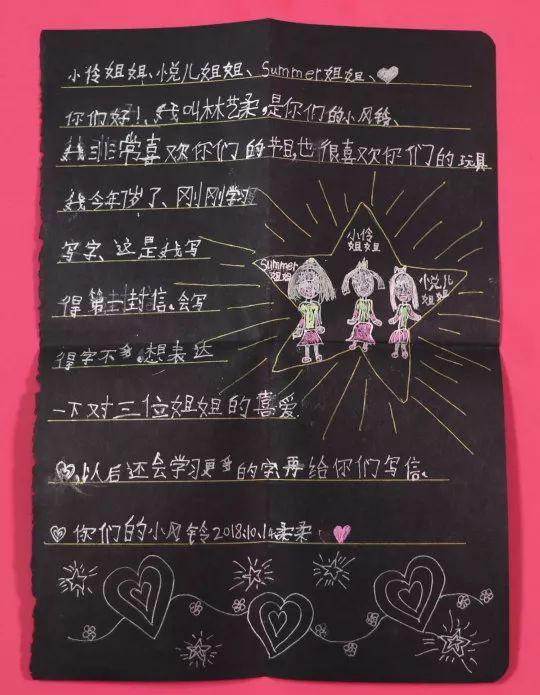 小伶姐姐、悦儿姐姐、Summer姐姐、
你们好!、我叫林艺柔,是你们的小风铃、
我非常喜欢你们的节目,也很喜欢你们的玩具
我今年7岁了、刚刚学习
写字、这是我写
得第封封信、会写
得字不多,想表达
一下对三位姐姐的喜爱.
以后还会学习更多的字再给你们写信、
你们的小风铃2018.10.14柔柔
小伶
姐姐
Summer
姐姐
小悦儿
姐姐